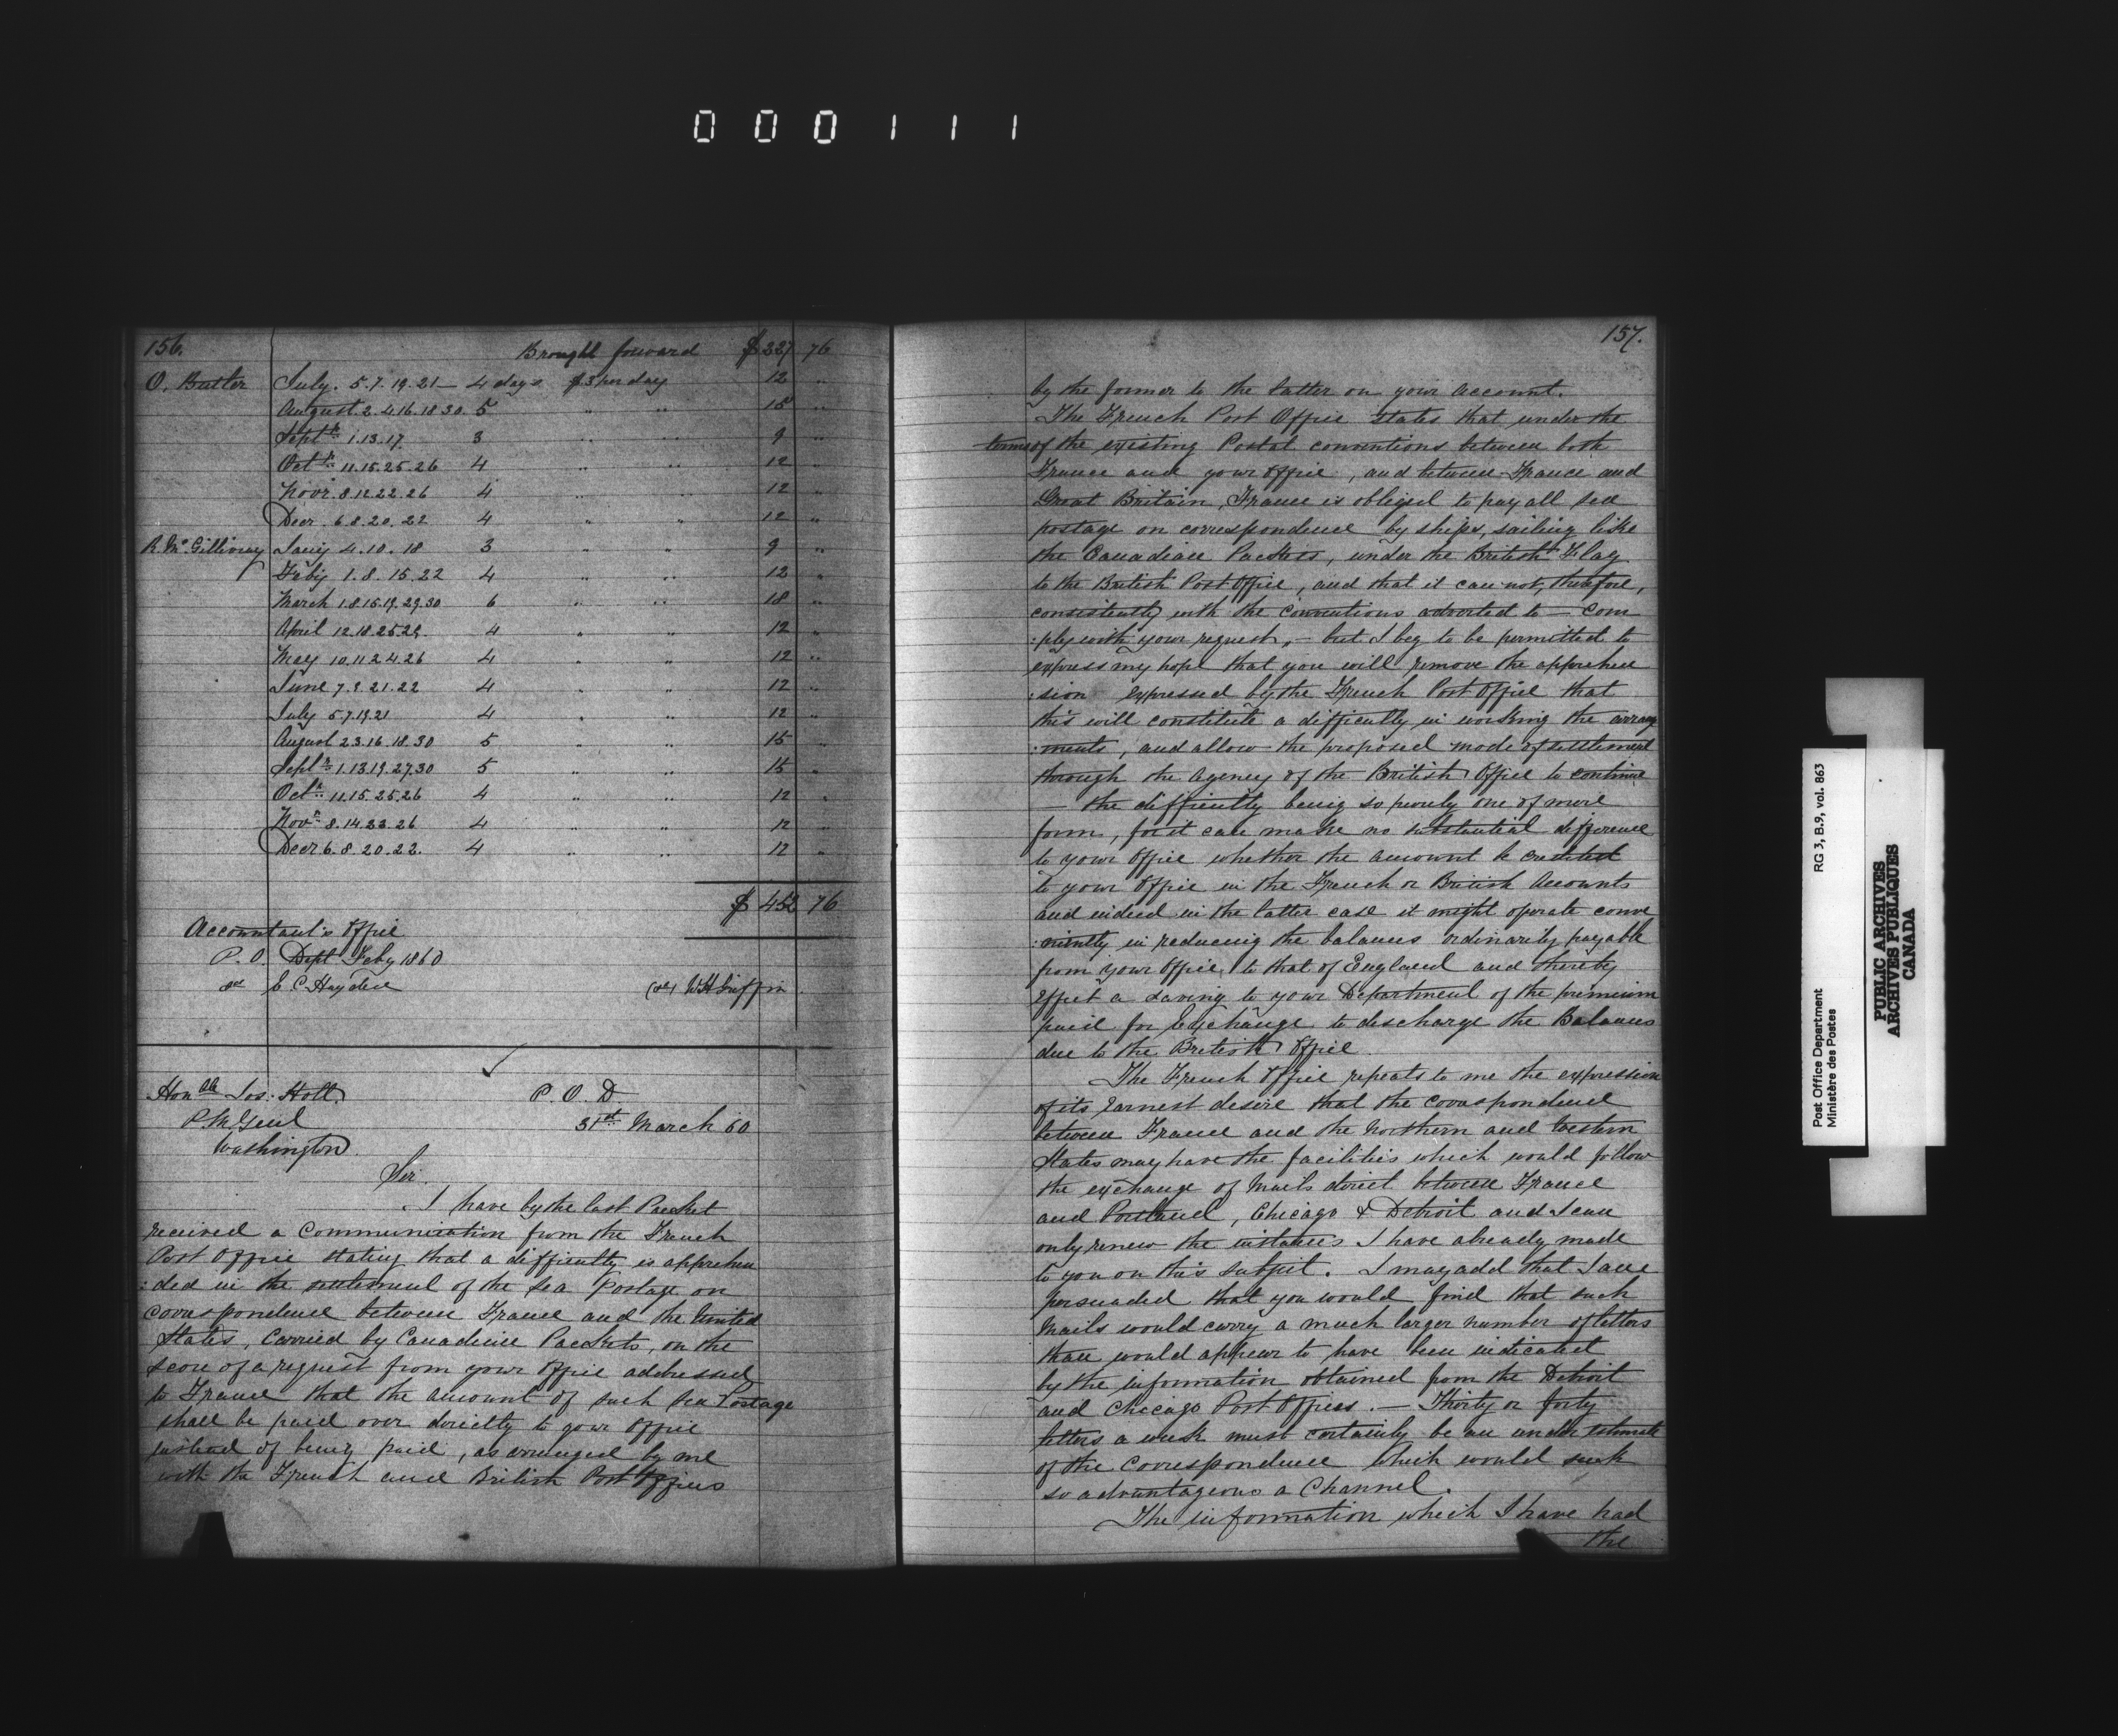 000111
156.
Brought forward $227 76
O. Butler July. 5.7.19.21 — 4 days $3 per day 12 "
August 2.4.16.18 30. 5 " " 15 "
Septr 1.13.17 3 " " 9 "
Octr 11.15.25.26 4 " " 12 "
Novr 8.12.22.26 4 " " 12 "
Decr 6.8.20.22 4 " " 12 "
R. McGillivray Jany 4.10.18 3 " " 9 "
Feby 1.8.15.22 4 " " 12 "
March 1.8.15.19.29.30 6 " " 18 "
April 12.18.25.29. 4 " " 12 "
May 10.11.24.26 4 " " 12 "
June 7.9.21.22 4 " " 12 "
July 5.7.19.21 4 " " 12 "
August 2.3.16.18.30 5 " " 15 "
Septr 1.13.19.27.30 5 " " 15 "
Octr 11.15.25.26 4 " " 12 "
Novr 8.14.23.26 4 " " 12 "
Decr 6.8.20.22. 4 " " 12 "
$452 76
Accountant's Office
P.O. Dept Feby 1860
E C Hayden W H Griffin
Honble Jos: Holt.
P.M. Genl
Washington
P. O. D
31st March 60
Sir.
I have by the last Packet
received a Communication from the French
Post Office stating that a difficulty is apprehen
:ded in the settlement of the sea Postage on
correspondence between France and the United
States, Carried by Canadian Packets, on the
score of a request from your Office addressed
to France that the amount of such Sea Postage
shall be paid over directly to your Office
instead of being paid, as arranged by me
with the French and British Post Offices
157.
by the former to the latter on your account.
The French Post Office states that under the
terms of the existing Postal conventions between both
France and your Office, and between France and
Great Britain, France is obliged to pay all sea
postage on correspondence by ships, sailing like
the Canadian Packets, under the British Flag
to the British Post Office, and that it can not, therefore,
consistently with the Conventions adverted to — com
:ply with your request, — but I beg to be permitted to
express my hope that you will remove the apprehen
:sion expressed by the French Post Office that
this will constitute a difficulty in working the arrange
:ments, and allow the proposed mode of settlement
through the Agency of the British Office to continue
— the difficulty being so purely one of mere
form, for it can make no substantial difference
to your Office whether the amount be credited
to your Office in the French or British Accounts
and indeed in the latter case it might operate conve
:niently in reducing the balances ordinarily payable
from your Office to that of England and thereby
effect a saving to your Department of the premium
paid for Exchange to discharge the Balances
due to the British Office.
The French Office repeats to me the expression
of its earnest desire that the correspondence
between France and the Northern and Western
States may have the facilities which would follow
the exchange of Mails direct between France
and Portland, Chicago & Detroit and I can
only renew the instances I have already made
to you on this subject. I may add that I am
persuaded that you would find that such
Mails would carry a much larger number of letters
than would appear to have been indicated
by the information obtained from the Detroit
and Chicago Post Offices. — Thirty or forty
letters a week must certainly be an under estimate
of the Correspondence which would seek
so advantageous a Channel.
The information which I have had
the
Post Office Department
Ministère des Postes
RG 3, B.9, vol. 863
PUBLIC ARCHIVES
ARCHIVES PUBLIQUES
CANADA